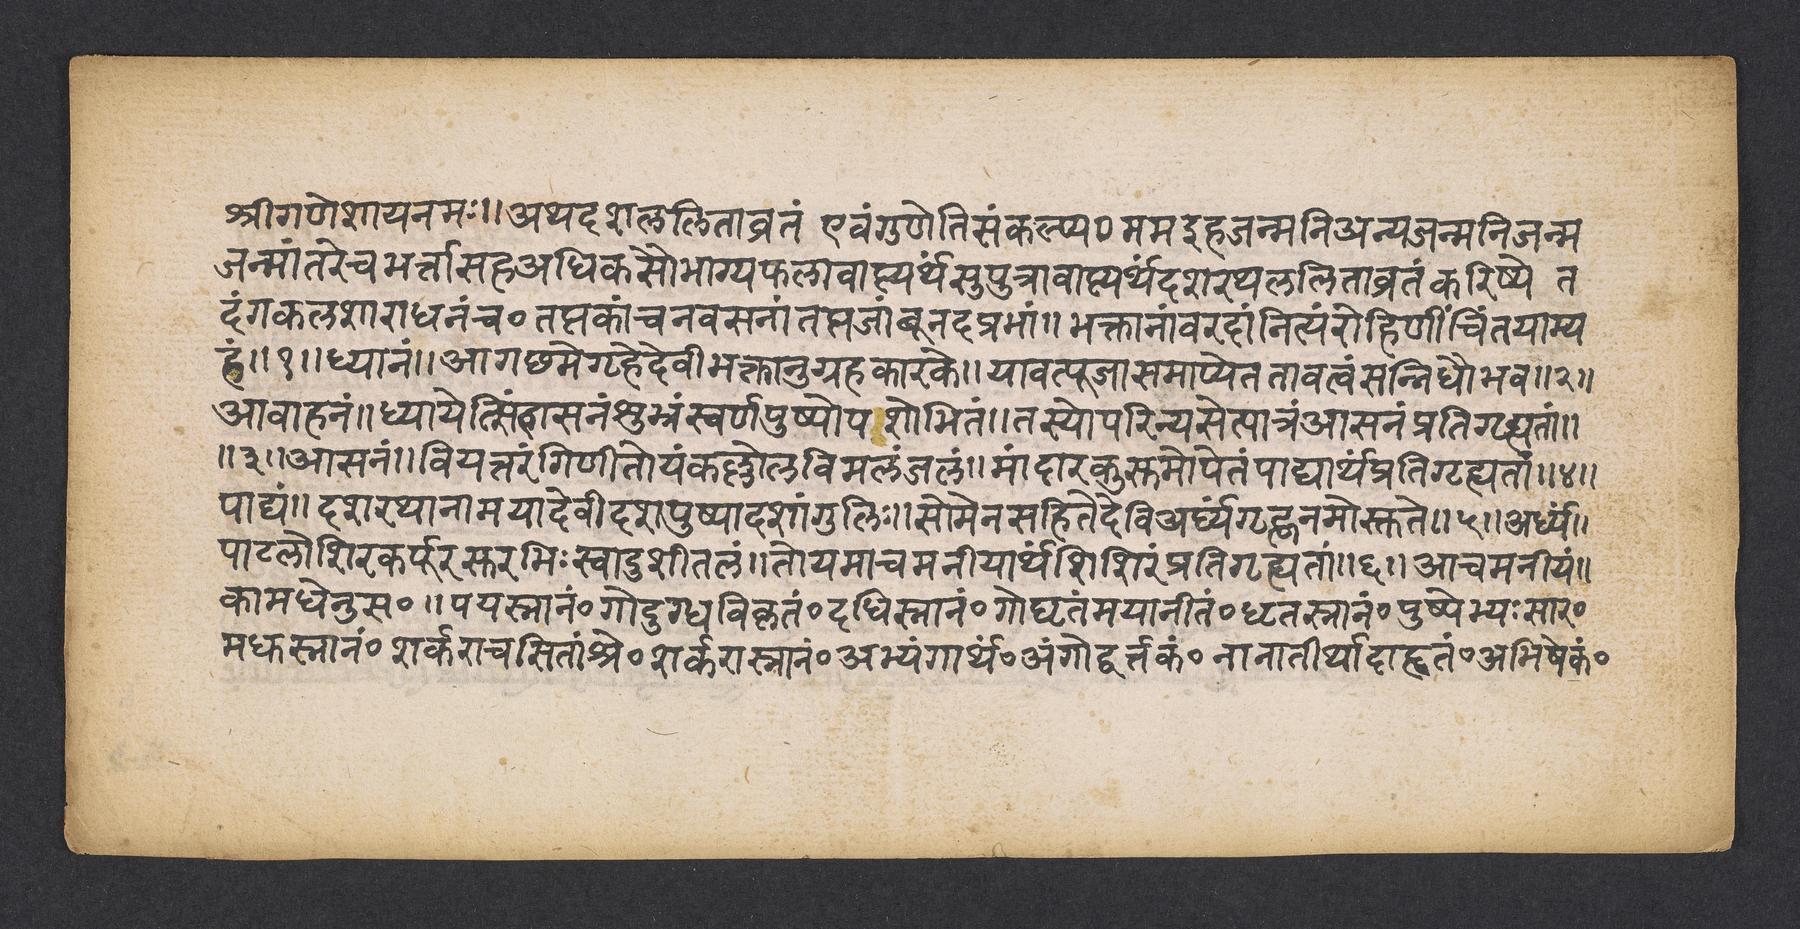 श्रीगणेशायनमः॥अथदशललिताव्रतं एवंगुणेतिसंकल्प्य०ममइहजन्मनिअन्यजन्मनिजन्म
जन्मांतरेचभर्त्तासहअधिकसौभाग्यफलावाप्त्यर्थंसुपुत्रावाप्त्यर्थंदशरथललिताव्रतंकरिष्ये त
दंगकलशाराधनंच०तप्तकांचनवसनांतप्तजांबूनदप्रभां॥भक्तानांवरदांनित्यंरोहिणींचिंतयाम्य
हं॥१॥ध्यानं॥आगछमेगृहेदेवीभक्तानुग्रहकारके॥यावत्पूजासमाप्येततावत्वंसन्निधौभव॥२॥
आवाहनं॥ध्यायेत्सिंहासनंशुभ्रंस्वर्णपुष्पोपशोभितं॥तस्योपरिन्यसेत्पात्रंआसनंप्रतिगृह्यतां॥
॥३॥आसनं॥वियत्तरंगिणीतोयंकल्लोलविमलंजलं॥मांदारकुस्तमोपेतंपाद्यार्थंप्रतिगृह्यतां॥४॥
पाद्यं॥दशरथानामयादेवीदशपुष्पादशांगुलिः॥सोमेनसहितेदेविअर्घ्यंगृह्णनमोस्तते॥५॥अर्घ्यं॥
पाटलोशिरकर्पूरस्तरभिःस्वादुशीतलं॥तोयमाचमनीयार्थंशिशिरंप्रतिगृह्यतां॥६॥आचमनीयं॥
कामधेनुस०॥पयस्नानं०गोदुग्धविकृतं०दधिस्नानं०गोघृतंमयानीतं०घृतस्नानं०पुष्पेभ्यःसार०
मधुस्नानं०शर्कराचसितांश्रे०शर्करास्नानं०अभ्यंगार्थं०अंगोद्वर्त्तकं०नानातीर्थादाहृतं०अभिषेकं०